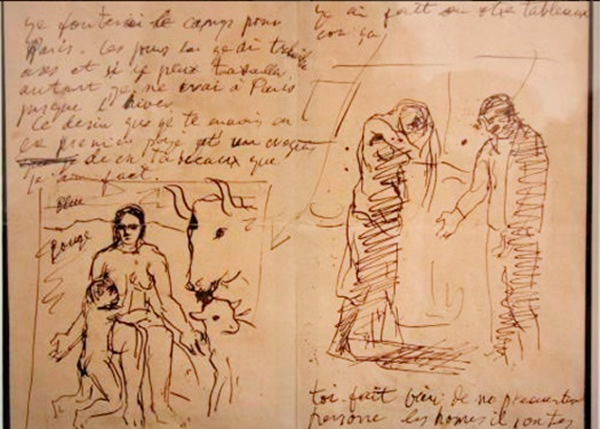 je fouterai le camps pour
Paris. Les jours
ases et si je peux travailler
autant je ne vrai à Paris
jusque l'hiver
Ce desin que je te envoi en
ce premier page et un croquis
de en tableaux que
je fact.
Bleu
rouge
Je ai fait on otre tableaux
con ça
toi fait bien de no
persone les homes il